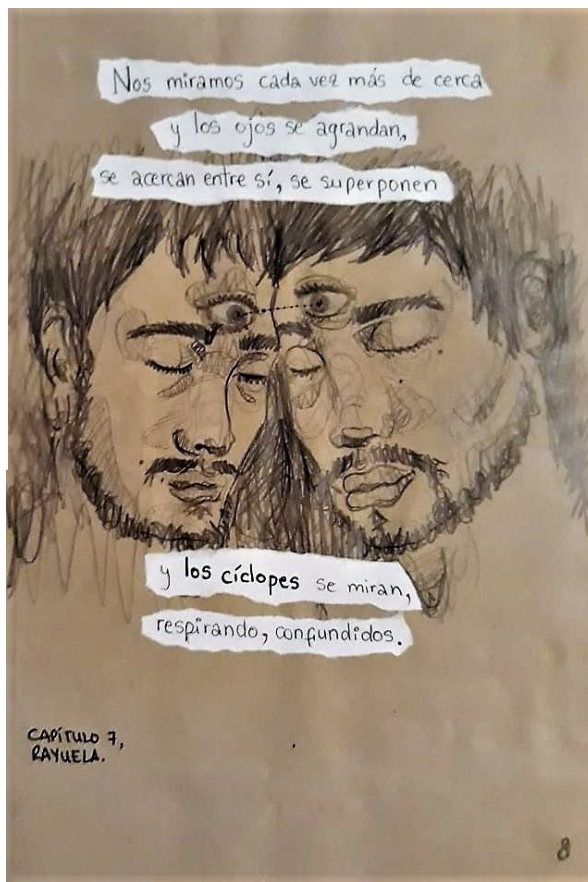 Nos miramos cada vez más de cerca
y los ojos se agrandan,
se acercan entre sí, se superponen
y los cíclopes se miran,
respirando, confundidos.
CAPÍTULO 7,
RAYUELA.
8